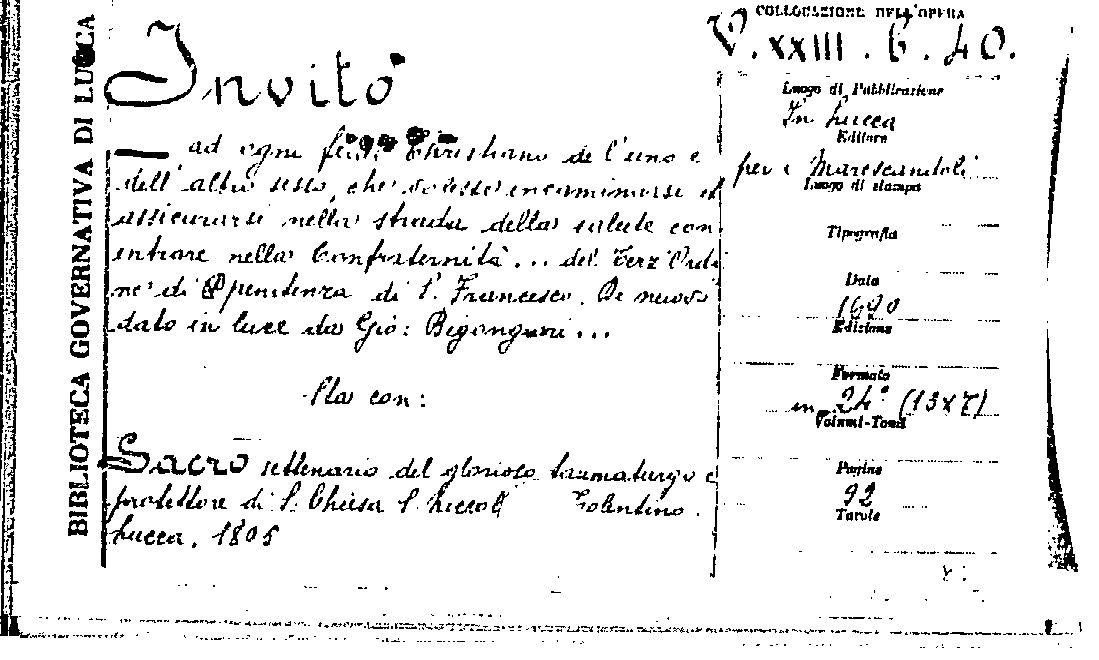 BIBLIOTECA GOVERNATIVA DI LUCCA
Invito
ad ogni Christiano de l'uno e
dell'altro sesso, che volesse incaminarsi ed
assicurarsi nella strada della salute con
entrare nella Confraternità... del Terz'Ordi
ne di penitenza di S. Francesco. Di nuovo
dato in luce da Gio: Bigongiari...
Sta con:
Sacro settenario del glorioso taumaturgo e
protettore di S. Chiesa S. Niccolò Tolentino.
Lucca, 1805
COLLOCAZIONE DELL'OPERA
V. XXIII. 6. 40.
Luogo di Pubblicazione
In Lucca
Editore
per i Marescandoli
Luogo di stampa
Tipografia
Data
1690
Edizione
Formato
in 24° (13x7)
Volumi-Tomi
Pagine
92
Tavole